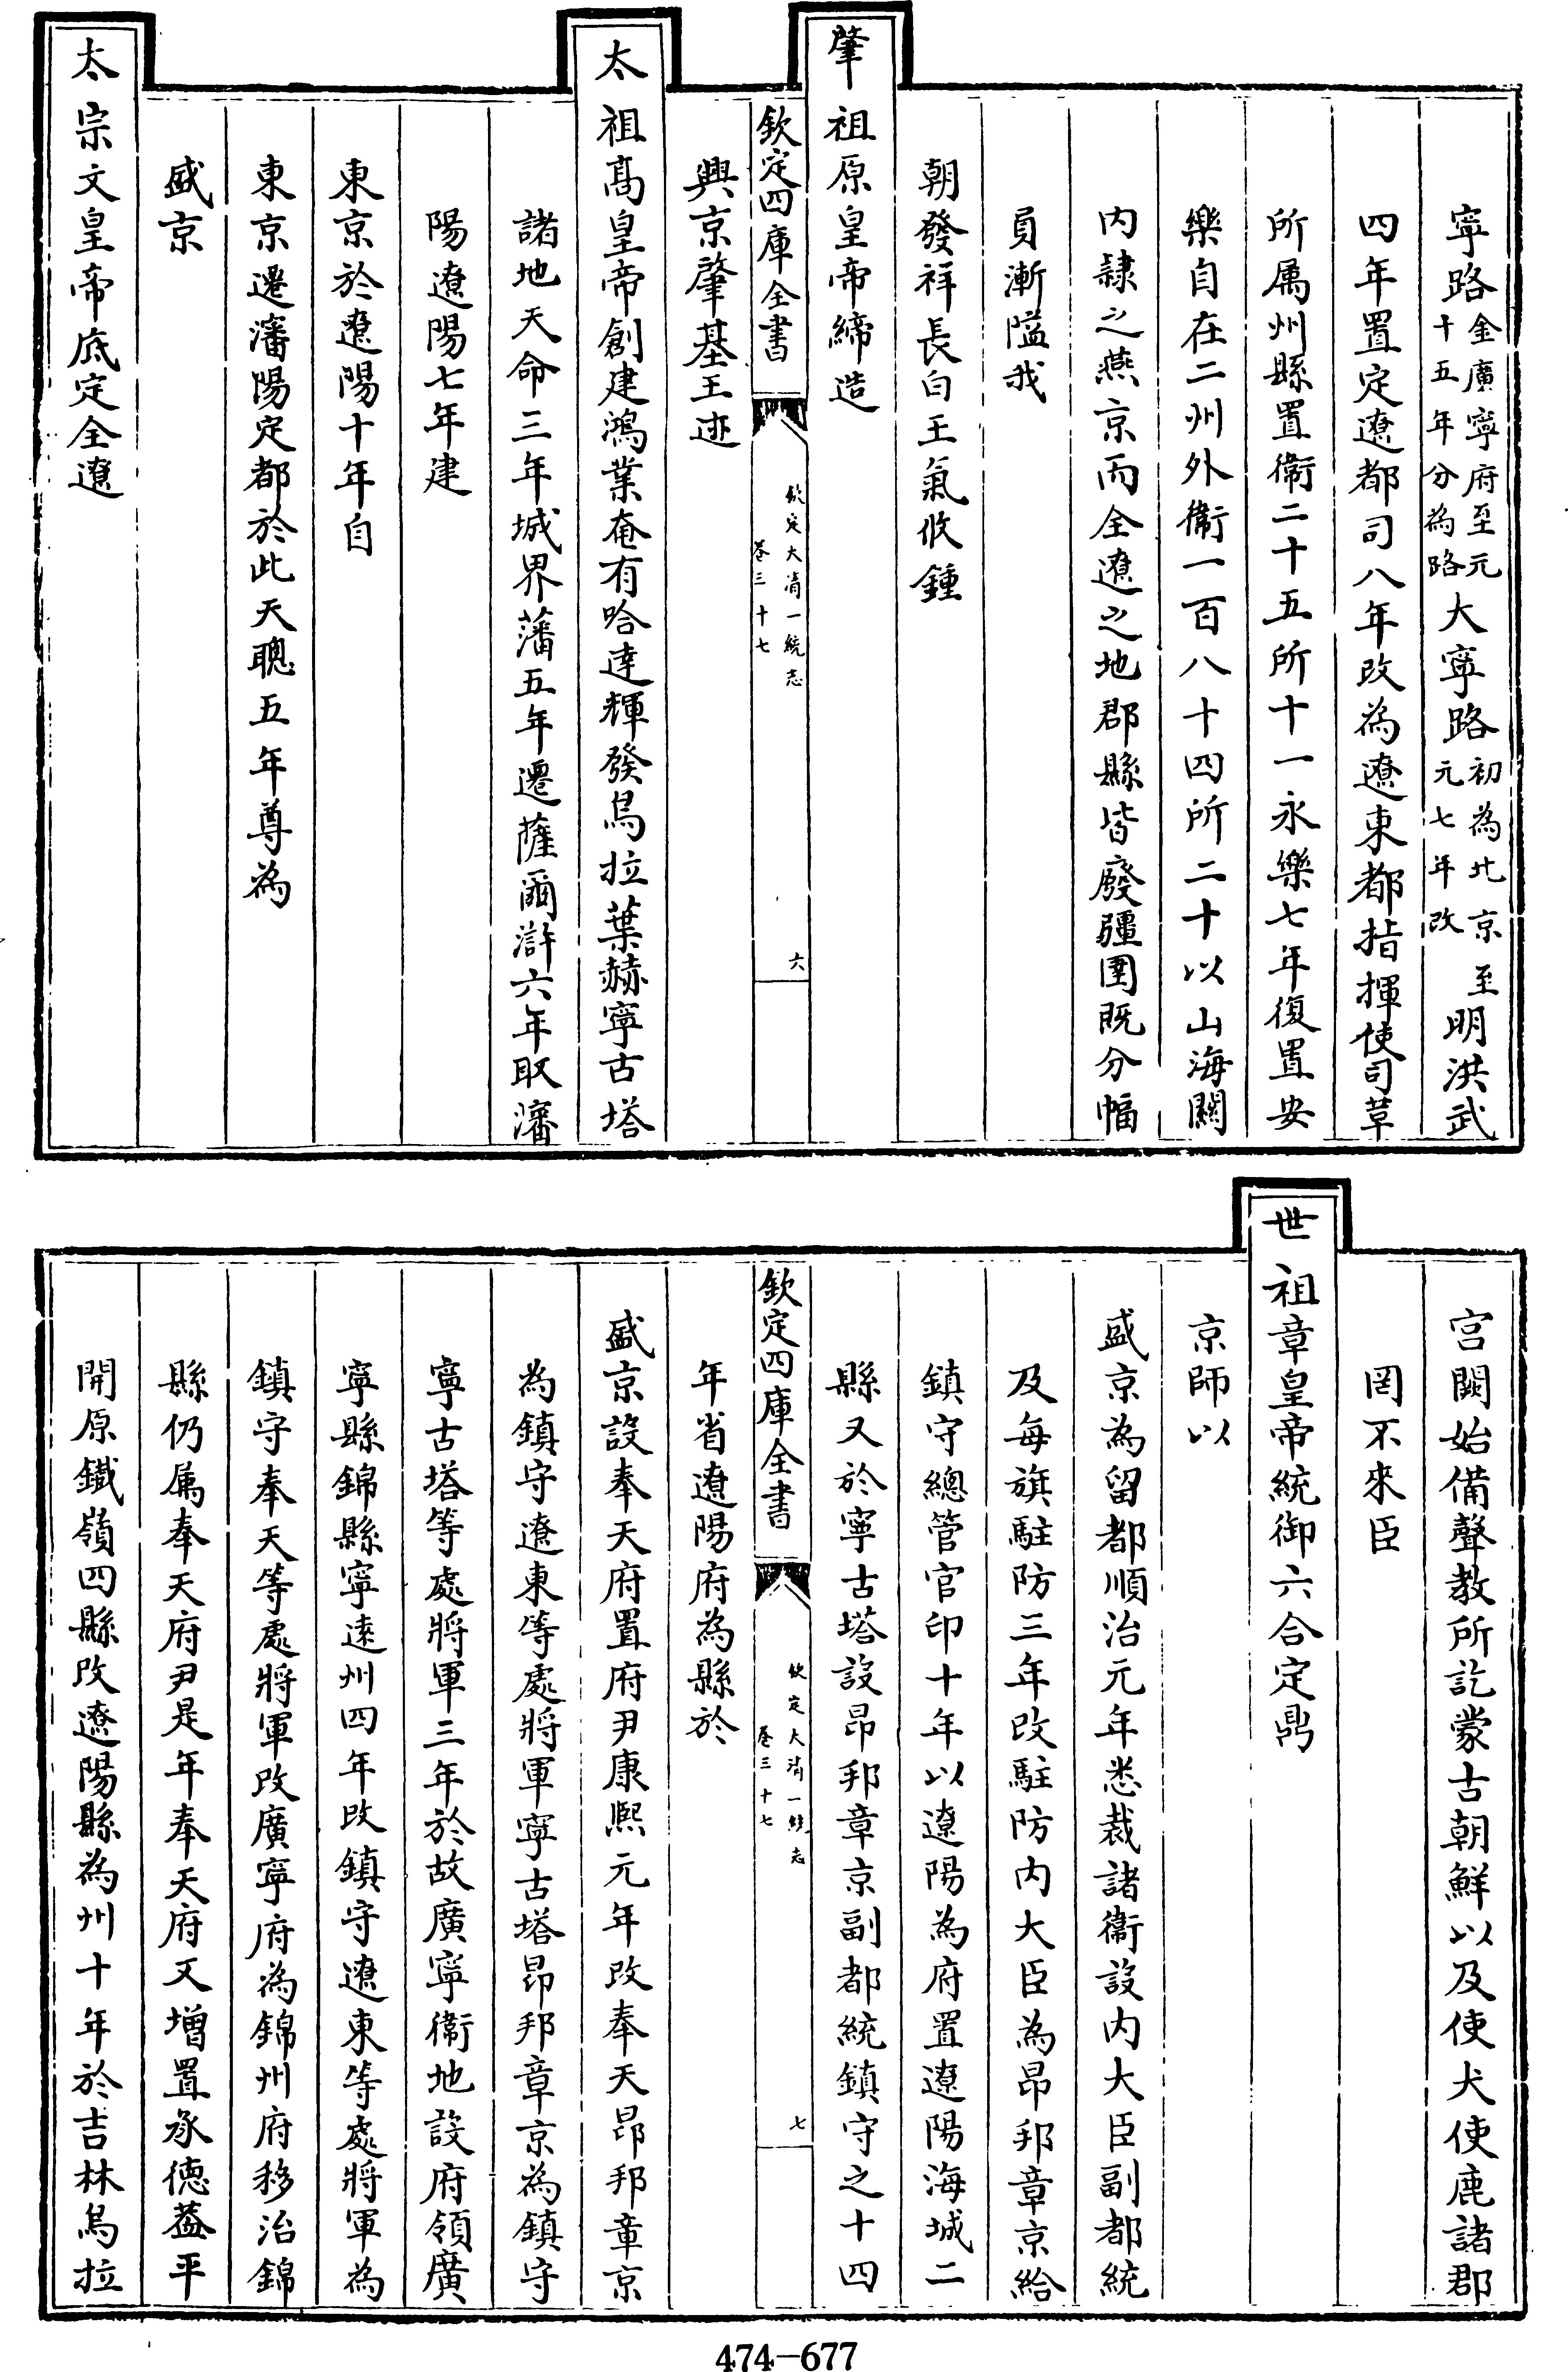 寧路金廣寧府至元十五年分為路大寧路初為北京至元七年改明洪武
四年置定遼都司八年改為遼東都指揮使司革
所属州縣置衛二十五所十一永樂七年復置安
樂自在二州外衛一百八十四所二十以山海關
内隷之燕京而全遼之地郡縣皆廢疆圉既分幅
員漸隘我
朝發祥長白王氣攸鍾
肇祖原皇帝締造
欽定四庫全書
欽定大清一統志
卷三十七
六
興京肇基王迹
太祖高皇帝創建鴻業奄有哈達輝發烏拉葉赫寧古塔
諸地天命三年城界藩五年遷薩爾滸六年取瀋
陽遼陽七年建
東京於遼陽十年自
東京遷瀋陽定都於此天聰五年尊為
盛京
太宗文皇帝底定全遼
宫闕始備聲教所訖蒙古朝鮮以及使犬使鹿諸郡
罔不來臣
世祖章皇帝統御六合定鼎
京師以
盛京為留都順治元年悉裁諸衛設内大臣副都統
及每旗駐防三年改駐防内大臣為昂邦章京給
鎮守總管官印十年以遼陽為府置遼陽海城二
縣又於寧古塔設昂邦章京副都統鎮守之十四
欽定四庫全書
欽定大清一統志
卷三十七
七
年省遼陽府為縣於
盛京設奉天府置府尹康熙元年改奉天昂邦章京
為鎮守遼東等處將軍寧古塔昂邦章京為鎮守
寧古塔等處將軍三年於故廣寧衛地設府領廣
寧縣錦縣寧逺州四年改鎮守遼東等處將軍為
鎮守奉天等處將軍改廣寧府為錦州府移治錦
縣仍属奉天府尹是年奉天府又增置承德葢平
開原鐵嶺四縣改遼陽縣為州十年於吉林烏拉
474-677